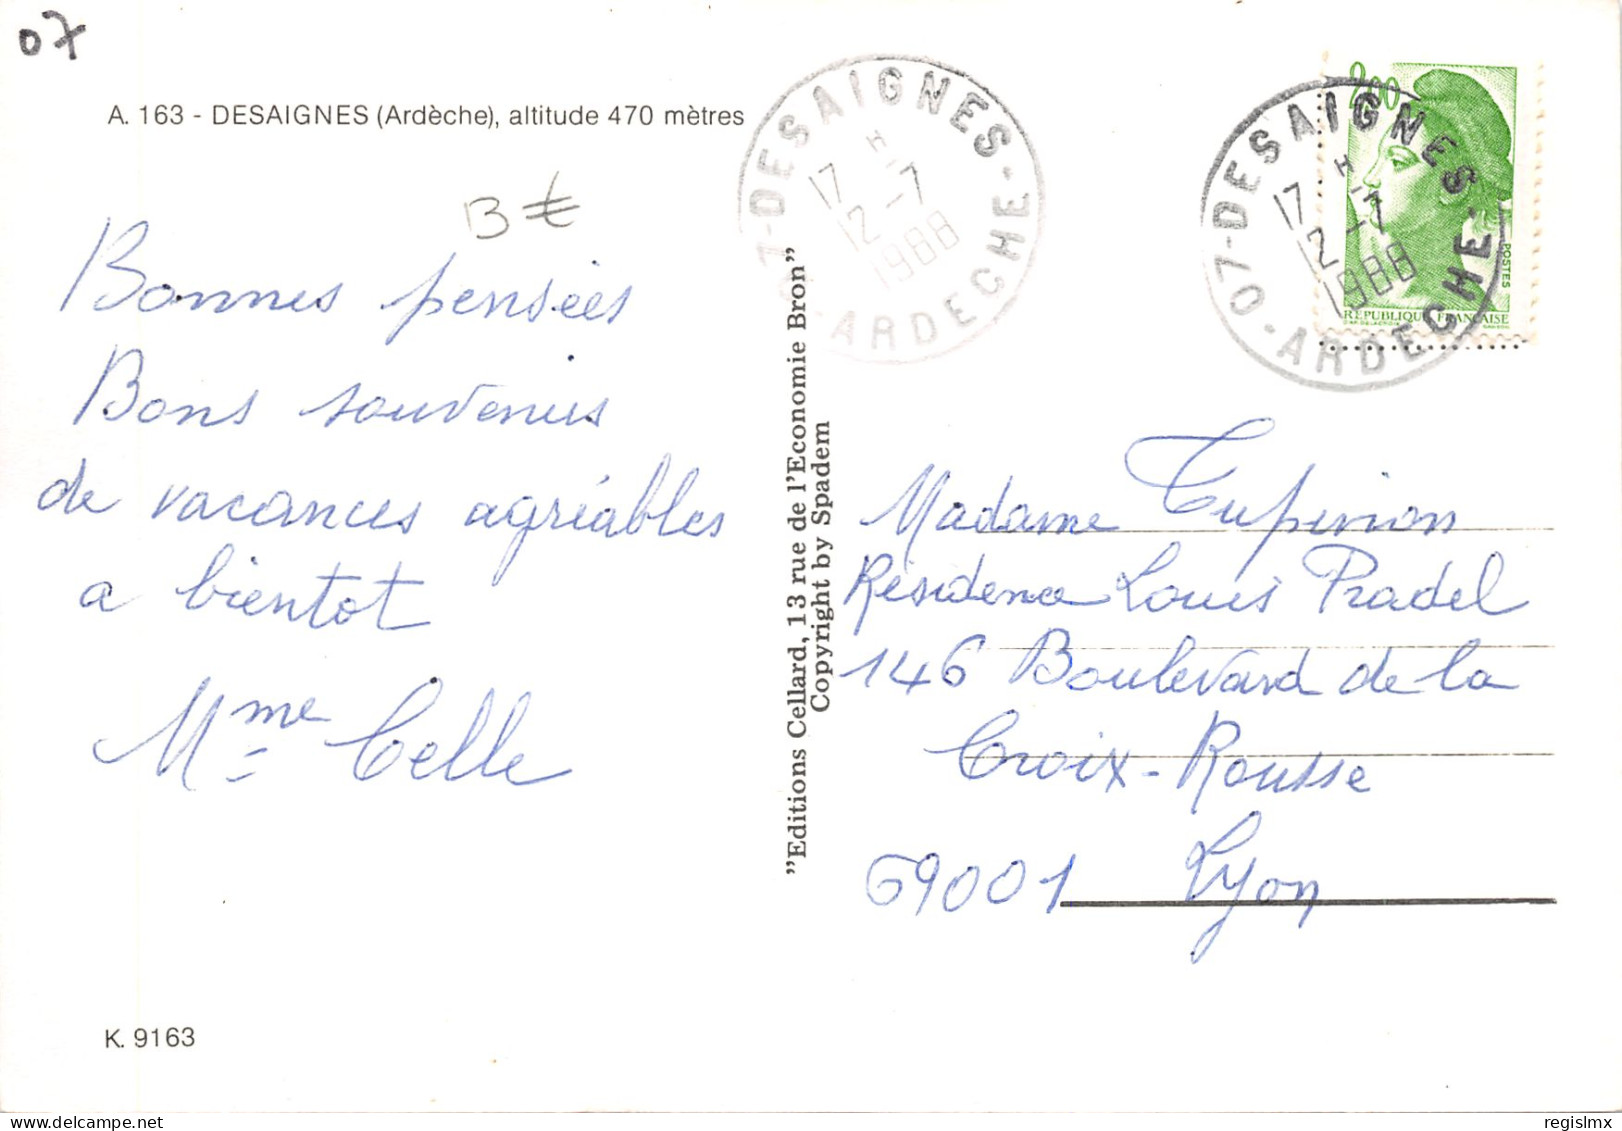 07
A. 163 - DESAIGNES (Ardèche), altitude 470 mètres
B €
Bonnes pensées
Bons souvenirs
de vacances agréables
a bientot
Mme Celle
K. 9163
"Editions Cellard, 13 rue de l'Economie Bron"
Copyright by Spadem
07-DESAIGNES-ARDECHE
17 H
12-7
1988
07-DESAIGNES-ARDECHE
17 H
12-7
1988
2,00
POSTES
REPUBLIQUE FRANÇAISE
D'AP. DELACROIX GANDON
Madame Tupinion
Résidence Louis Pradel
146 Boulevard de la
Croix-Rousse
69001 Lyon
regislmx